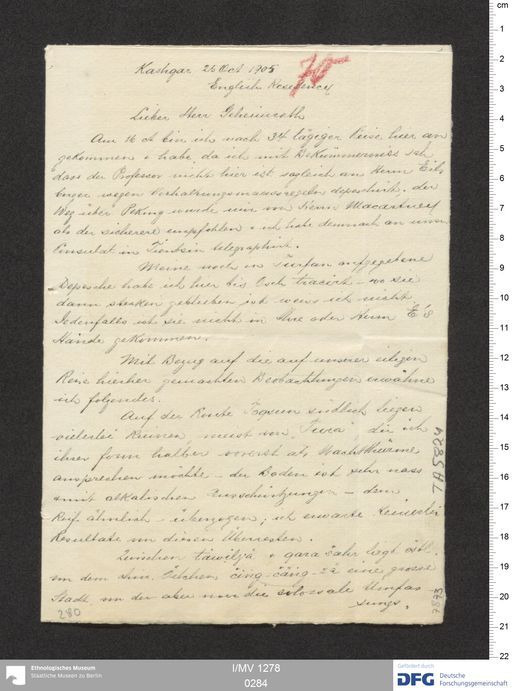 Kashgar 26 Oct 1905
English Residency
Lieber Herr Geheimrath
Am 16 ct bin ich nach 34 tägiger Reise hier an
gekommen & habe, da ich mit Bekümmerniss sah
dass der Professor nicht hier ist sogleich an Herrn
wegen Verhaltungsmaassregeln depeschirt. der
Weg über Peking wurde mir von Herrn Macartney
als der sicherere empfohlen & ich habe demnach an unser
Consulat in Tientsin telegraphirt.
Meine noch in Turfan aufgegebene
Depesche habe ich hier bis Osch tracirt – wo sie
dann stecken geblieben ist weiss ich nicht
Jedenfalls ist sie nicht in Ihre oder Herrn E's
Hände gekommen.
Mit Bezug auf die auf unserer eiligen
Reise hierher gemachten Beobachtungen erwähne
ich folgendes.
Auf der Route Toqsun südlich liegen
vielerlei Ruinen, meist von "Tura", die ich
ihrer form halber vorerst als Wachtthürme
ansprechen möchte – der Boden ist sehr nass
& mit alkalischen – dem
Reif ähnlich – überzogen; ich erwarte keinerlei
Resultate von diesen Überresten.
Zwischen & qara šahr liegt östl.
von dem eine grosse
Stadt, von der aber nur die colossale Umfas
sungs.
7A5824
7893
280
cm
1
2
3
4
5
6
7
8
9
10
11
12
13
14
15
16
17
18
19
20
21
22
Ethnologisches Museum
Staatliche Museen zu Berlin
I/MV 1278
0284
Gefördert durch
DFG Deutsche
Forschungsgemeinschaft